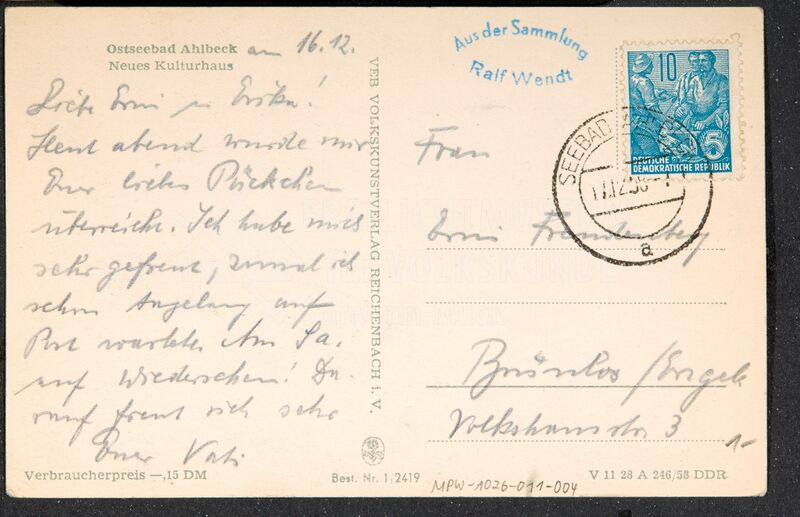 Ostseebad Ahlbeck am 16.12.
Neues Kulturhaus
Liebe Erni u Erika!
Heut abend wurde mir
Euer liebes Päckchen
überreicht. Ich habe mich
sehr gefreut, zumal ich
schon Angelang auf
Post wartete. Am Sa.
auf Wiedersehen! Da-
rauf freut sich sehr
Euer Vati
Verbraucherpreis —,15 DM
VEB VOLKSKUNSTVERLAG REICHENBACH i. V.
Best. Nr. 1/2419
Aus der Sammlung
Ralf Wendt
10
5
DEUTSCHE
DEMOKRATISCHE REPUBLIK
SEEBAD
a
Frau
Erni Freudenberg
Brünlos/Erzgeb.
Volkshausstr 3
1-
MPW-1026-011-004
V 11 28 A 246/58 DDR